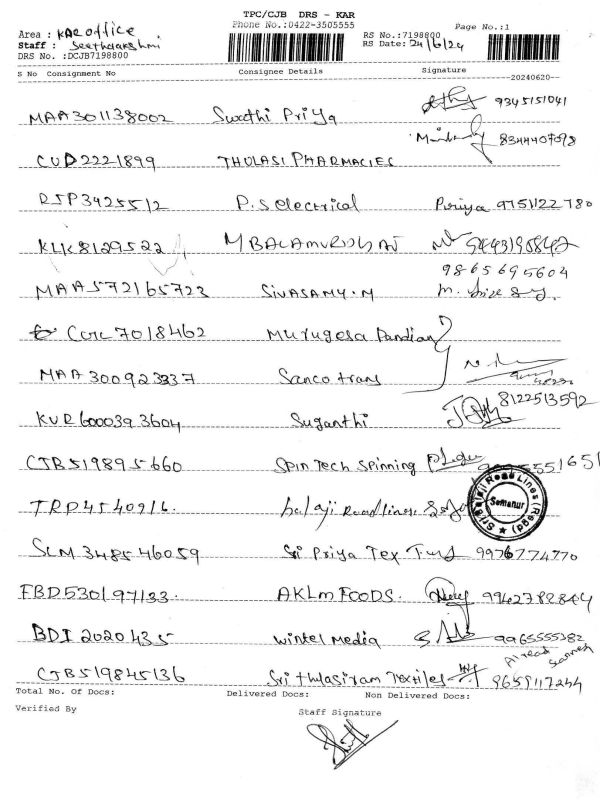 TPC/CJB DRS - KAR
Phone No.:0422-3505555
Page No.:1
Area : KAR office
RS No.:7198800
Staff : Seethalakshmi
RS Date: 24/6/24
DRS No. :DCJB7198800
S No Consignment No Consignee Details Signature
20240620
MAA301138002 Swathi Priya 9345151041
8344407098
CUD2221899 THULASI PHARMACIES
RJP3425512 P.S electrical Priya 9751122780
KLK8129522 M BALAMURUGAN
9865695604
MAA572165723 SIVASAMY.M
7018462 Murugesa Pandian
MAA300923337 Sanco trans
KVR600393604 Suganthi 8122513592
CJB519895660 Spin Tech Spinning
TRD4540916 balaji Roadlines
Sri Balaji Road Lines (Regd) Semanur
SLM348546059 Sri Priya Tex 9976774770
FBD530197133 AKLM FOODS. 9942782844
BDI2020435 Wintel Media 9965555382
Already Scanned
CJB519845136 Sri thulasiram Textiles 9659117244
Total No. Of Docs: Delivered Docs: Non Delivered Docs:
Verified By Staff Signature